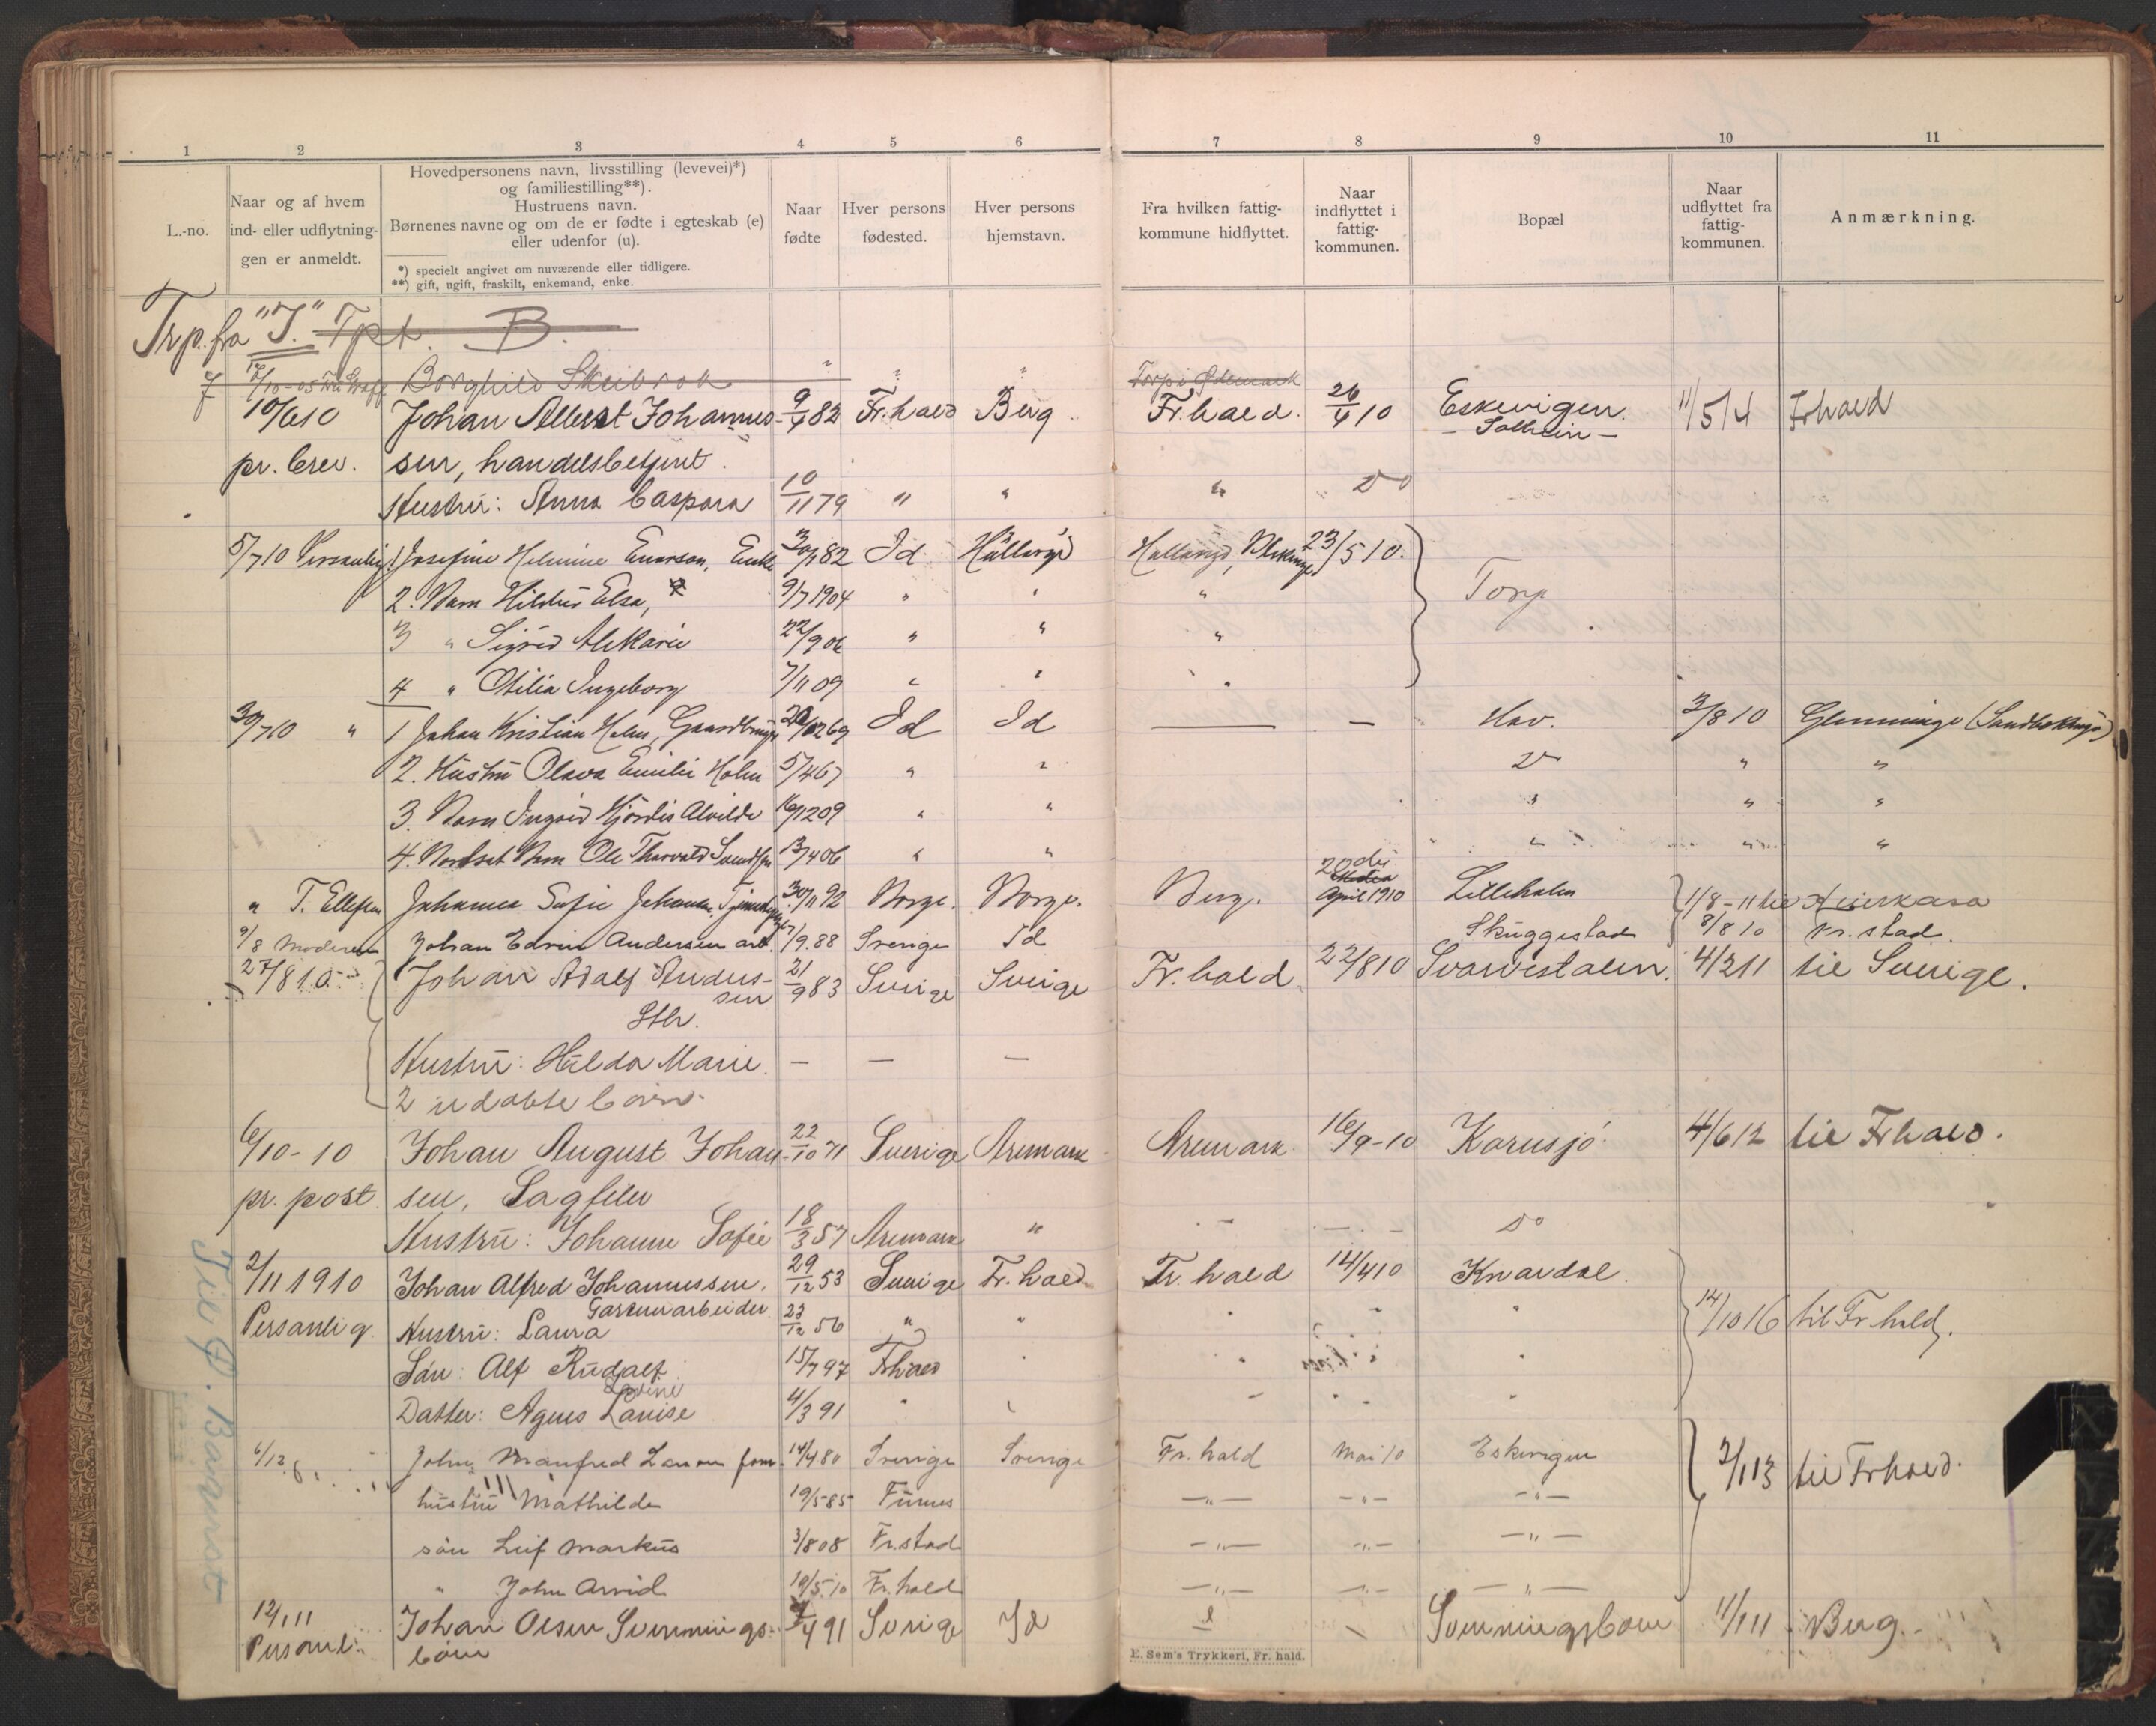 1 2 3 4 5 6 7 8 9 10 11
L.-no.
Naar og af hvem ind- eller udflytningen er anmeldt.
Hovedpersonens navn, livsstilling (levevei)*)
og familiestilling**).
Hustruens navn.
Børnenes navne og om de er fødte i egteskab (e)
eller udenfor (u).
*) specielt angivet om nuværende eller tidligere.
**) gift, ugift, fraskilt, enkemand, enke.
Naar fødte
Hver persons fødested.
Hver persons hjemstavn.
Fra hvilken fattigkommune hidflyttet.
Naar indflyttet i fattigkommunen.
Bopæl
Naar udflyttet fra fattigkommunen.
Anmærkning.
Trp. fra "J." Tpt. B.
Borghild Skibrok " " " Torp i Ødemark
10/6 10 Johan Albert Johannes- 9/4 82 Fr.hald Berg Fr.hald. 26/4 10 Eskevigen. 11/5 14 Frhald
- Solheim -
pr. brev. sen, handelsbetjent.
Hustru: Anna Caspara 10/11 79 " " " Do
5/7 10 Personlig 1. Josefine Helmine Enarson, Enke 30/1 82 Id Hällaryd Hallaryd, Blekinge 23/5 10.
2. Barn Hildus Elsa, 9/7 1904 " " " Torp
3 " Sigrid AleKarie 22/9 06 " " "
4 " Otilia Ingeborg 7/11 09 " " "
30/7 10 " 1 Johan Kristian Holm, Gaardbruger 69 Id Id — — Hov. 3/8 10 Glemminge (Sandbakken)
2. Hustru Olava Emilie Holm 5/4 67 " " Do " "
3. Barn Ingrid Hjördis Alvilde 16/12 09 " " " " "
4. Bortsat Barn Ole Thorvald Svendsen 13/4 06 " " " " "
" T. Ellefsen Johanna Sofie Johansen, Tjenestepige 30/11 92 Norge. Norge. Berg. 20de April 1910 Lilleholm 1/8-11 til
9/8 Moderen Johan Edvin Andersen arb. 7/9.88 Sverige Id Skuggestad 8/8 10 Fr.stad.
27/8 10 Johan Adolf Anders- 21/9 83 Sverige Sverige Fr.hald 22/8 10 Svarvestalen. 4/2 11 til Sverige.
sen
Sthr.
Hustru: Hilda Marie. — — —
2 udøbte børn.
6/10-10 Johan August Johan- 22/10 71 Sverige Aremark Aremark. 16/9-10 Kornsjø. 4/6 12 til Frhald.
pr. post sen, Sagfiler
Hustru: Johanne Sofie 18/3 57 Aremark " - - Do
2/11 1910 Johan Alfred Johannessen. 29/12 53 Sverige Fr.hald Fr.hald 14/4 10 Knardal.
Garveriarbeider
Personlig. Hustru: Laura 23/12 56 " " " " " 14/10 16 til Fr.hald.
Søn: Alf Rudolf 15/7 97 Frhald " " "
Lovine
Datter: Agnes Louise 4/3 91 " " " " "
6/12. John Manfred Larsen form. 14/4 80 Sverige Sverige Fr.hald Mai 10 Eskevigen
hustru Mathilde 19/5-85 Furnes —"— —"— —"— 2/1 13 til Frhald.
søn Leif Markus 3/8 08 Fr.stad —"— —"— —"—
" John Arvid 19/5 10 Fr.hald —"— —"— —"—
12/1 11 Johan Olsen Svenningsbøen 91 Sverige Id Svenningsbøen 11/1 11 Berg.
Personl.
Til P. Barnst
E. Sem's Trykkeri, Fr. hald.